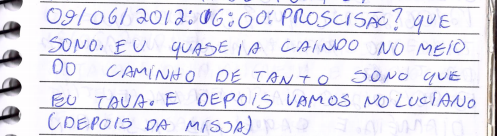 09/06/2012: 06:00: PROSCISÃO? QUE
SONO. EU QUASE IA CAINDO NO MEIO
DO CAMINHO DE TANTO SONO QUE
EU TAVA. E DEPOIS VAMOS NO LUCIANO
(DEPOIS DA MISSA)